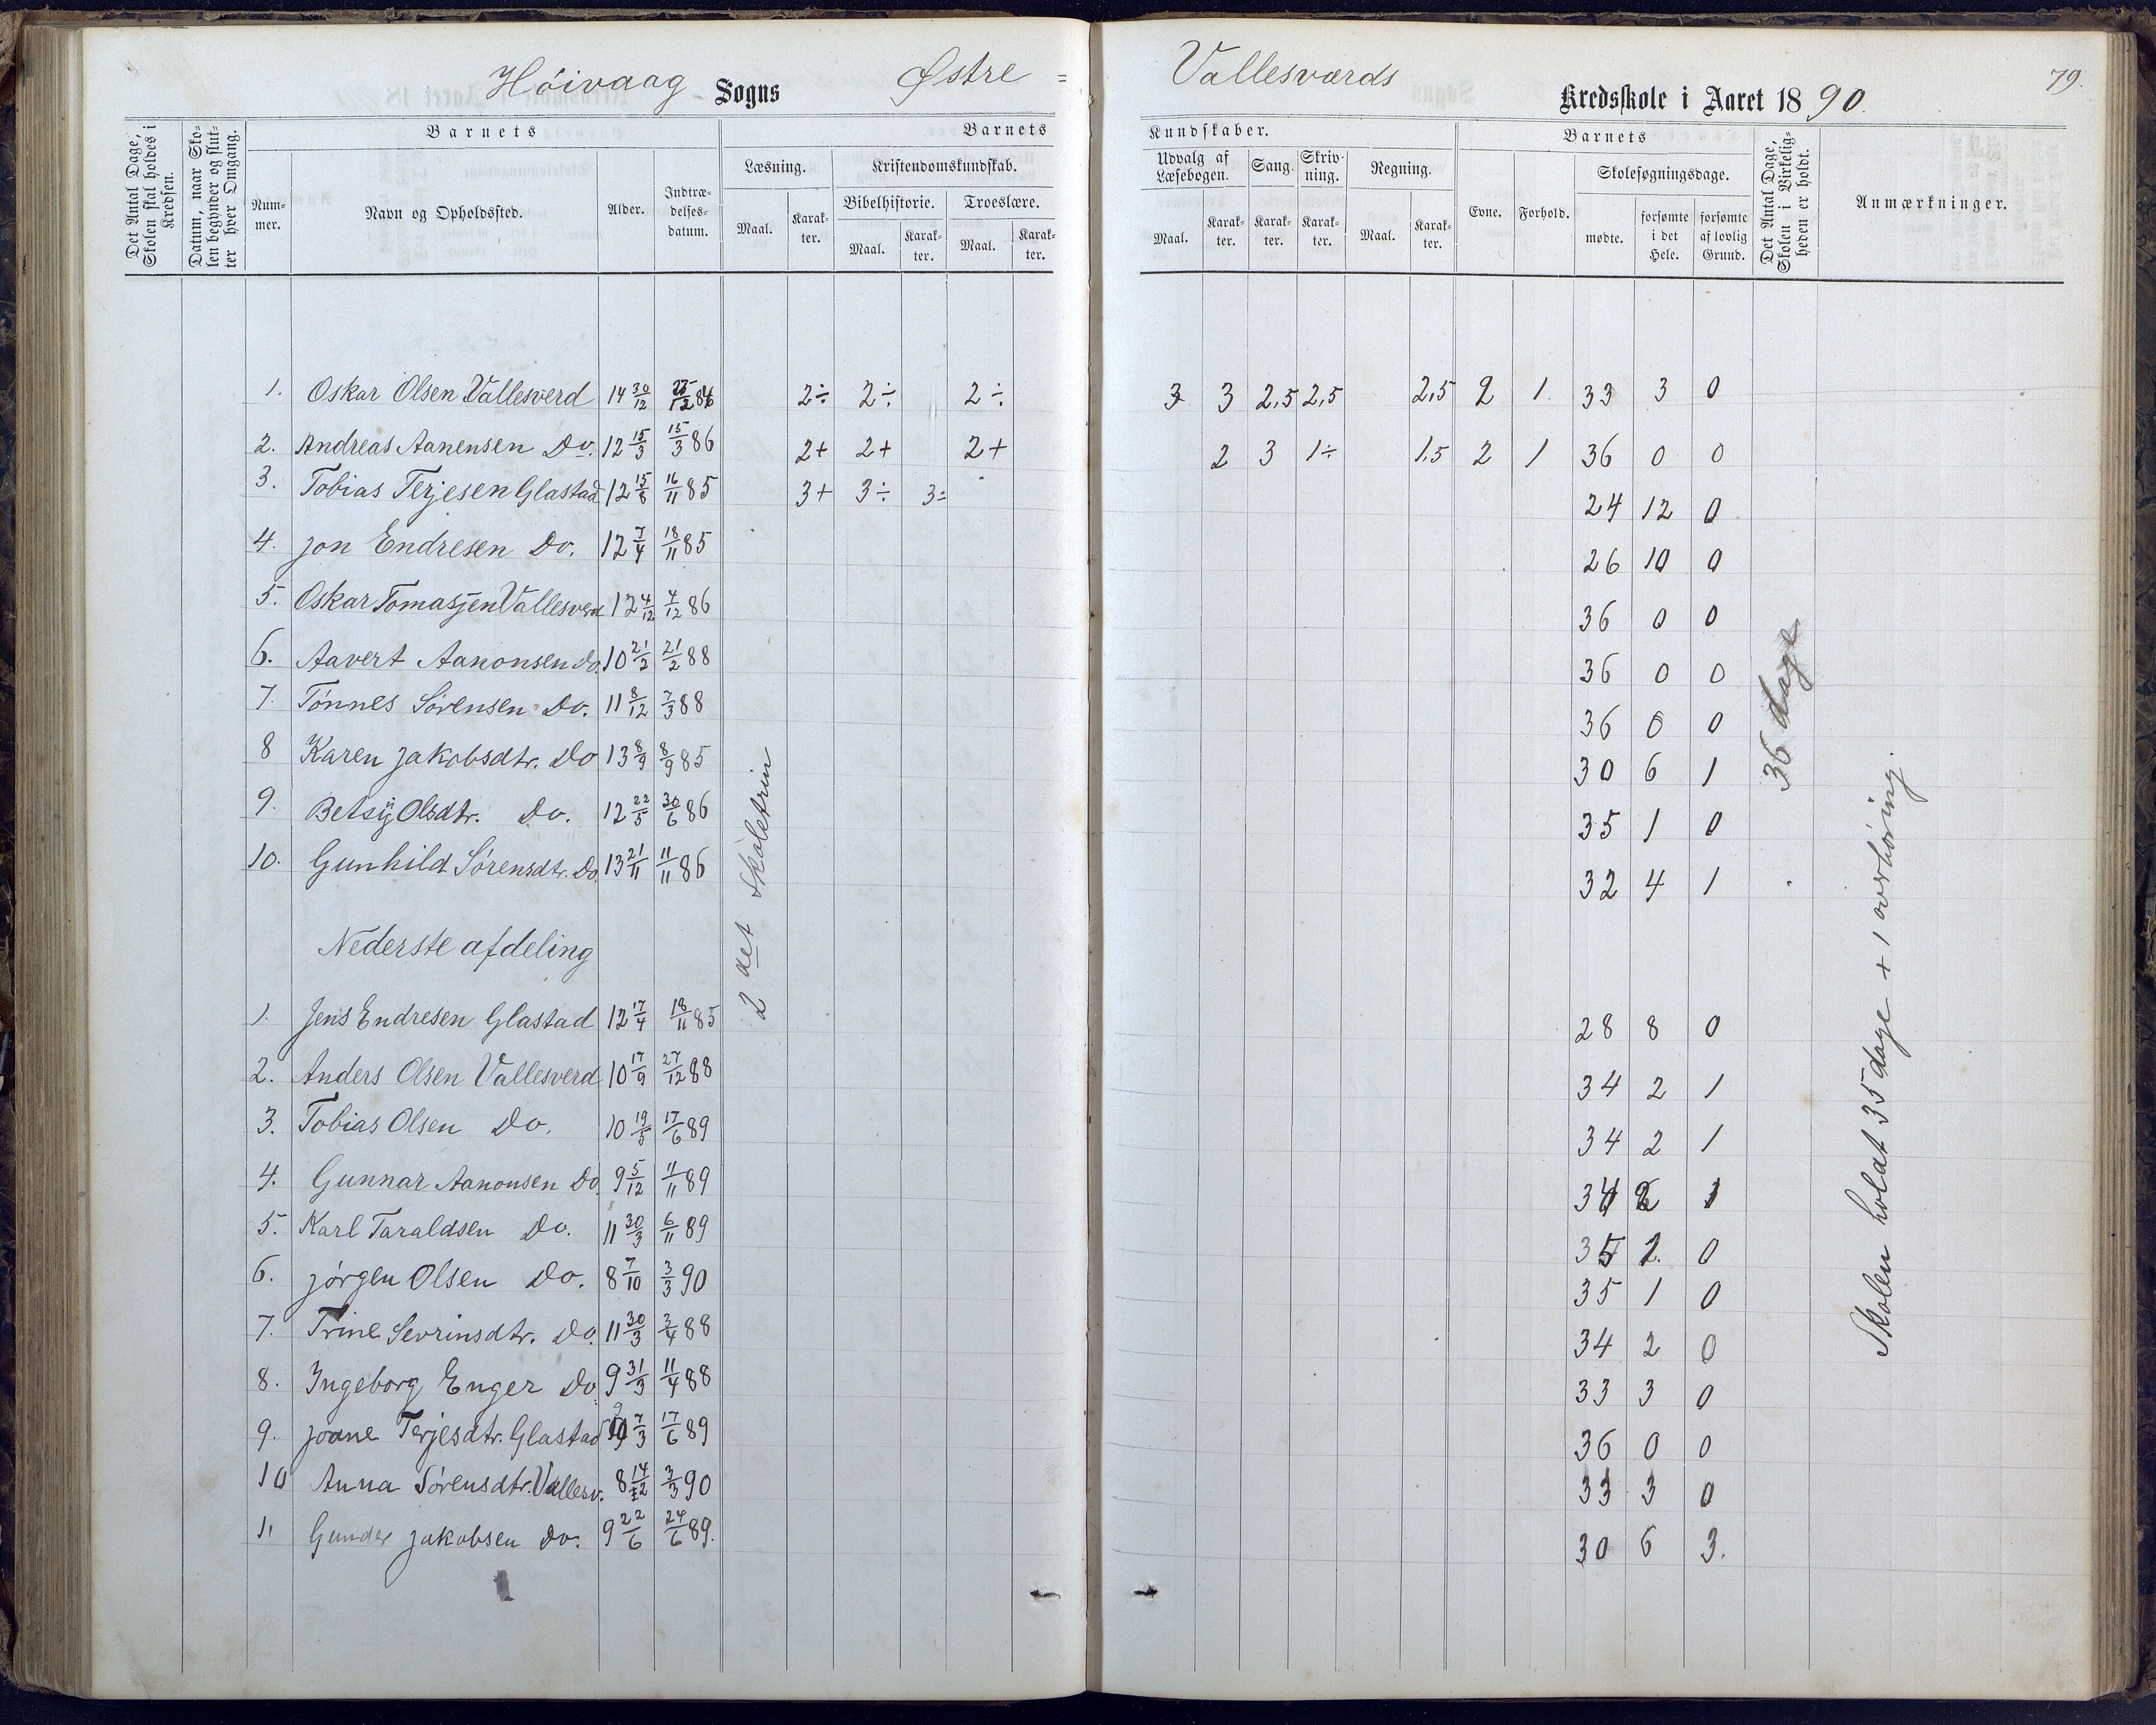 Høivaag Sogns Østre = Vallesværds Kredsskole i Aaret 1890. 79.
Det Antal Dage, Skolen skal holdes i Kredsen.
Datum, naar Skolen begynder og slutter hver Omgang.
Barnets
Barnets
Kundskaber.
Barnets
Det Antal Dage, Skolen i Virkeligheden er holdt.
Anmærkninger.
Nummer.
Navn og Opholdssted.
Alder.
Indtrædelsesdatum.
Læsning.
Kristendomskundskab.
Udvalg af Læsebogen.
Sang.
Skrivning.
Regning.
Evne.
Forhold.
Skolesøgningsdage.
Bibelhistorie.
Troeslære.
Maal. Karakter. Maal. Karakter. Maal. Karakter. Maal. Karakter. Karakter. Karakter. Maal. Karakter.
mødte. forsømte i det Hele. forsømte af lovlig Grund.
1. Oskar Olsen Vallesverd 14 30/12 86 2÷ 2÷ 2÷ 3 3 2,5 2,5 2,5 2 1. 33 3 0
2. Andreas Aanensen Do. 12 15/3 15/3 86 2+ 2+ 2+ 2 3 1÷ 1,5 2 1 36 0 0
3. Tobias Terjesen Glastad 12 15/8 16/11 85 3+ 3÷ 3÷ 24 12 0
4. Jon Endresen Do. 12 7/4 18/11 85 26 10 0
5. Oskar Tomasjen Vallesverd 12 4/12 4/12 86 36 0 0
6. Aavert Aanonsen do. 10 21/2 21/2 88 36 0 0
7. Tønnes Sørensen Do. 11 8/12 7/3 88 36 0 0
8 Karen Jakobsdtr. Do 13 8/9 8/9 85 30 6 1
9. Betsÿ Olsdtr. Do. 12 22/5 30/6 86 35 1 0
10. Gunhild Sørensdtr. Do. 13 21/11 11/11 86 32 4 1
36 dage
2 det Skoletrin
Nederste afdeling
1. Jens Endresen Glastad 12 17/4 18/11 85 28 8 0
2. Anders Olsen Vallesverd 10 17/9 27/12 88 34 2 1
3. Tobias Olsen Do. 10 19/5 17/6 89 34 2 1
4. Gunnar Aanonsen Do. 9 5/12 11/11 89 34 2 1
5. Karl Taraldsen Do. 11 30/3 6/11 89 35 1. 0
6. Jørgen Olsen Do. 8 7/10 3/3 90 35 1 0
7. Trine Sevrinsdtr. Do. 11 30/3 3/4 88 34 2 0
8. Ingeborg Enger Do 9 31/3 11/4 88 33 3 0
9. Joane Terjesdtr. Glastad 9 7/3 17/6 89 36 0 0
10 Anna Sørensdtr. Vallesv. 8 14/12 3/3 90 33 3 0
11 Gunder Jakobsen Do. 9 22/6 24/6 89. 30 6 3.
Skolen holdt 35 dage + 1 overhøring.